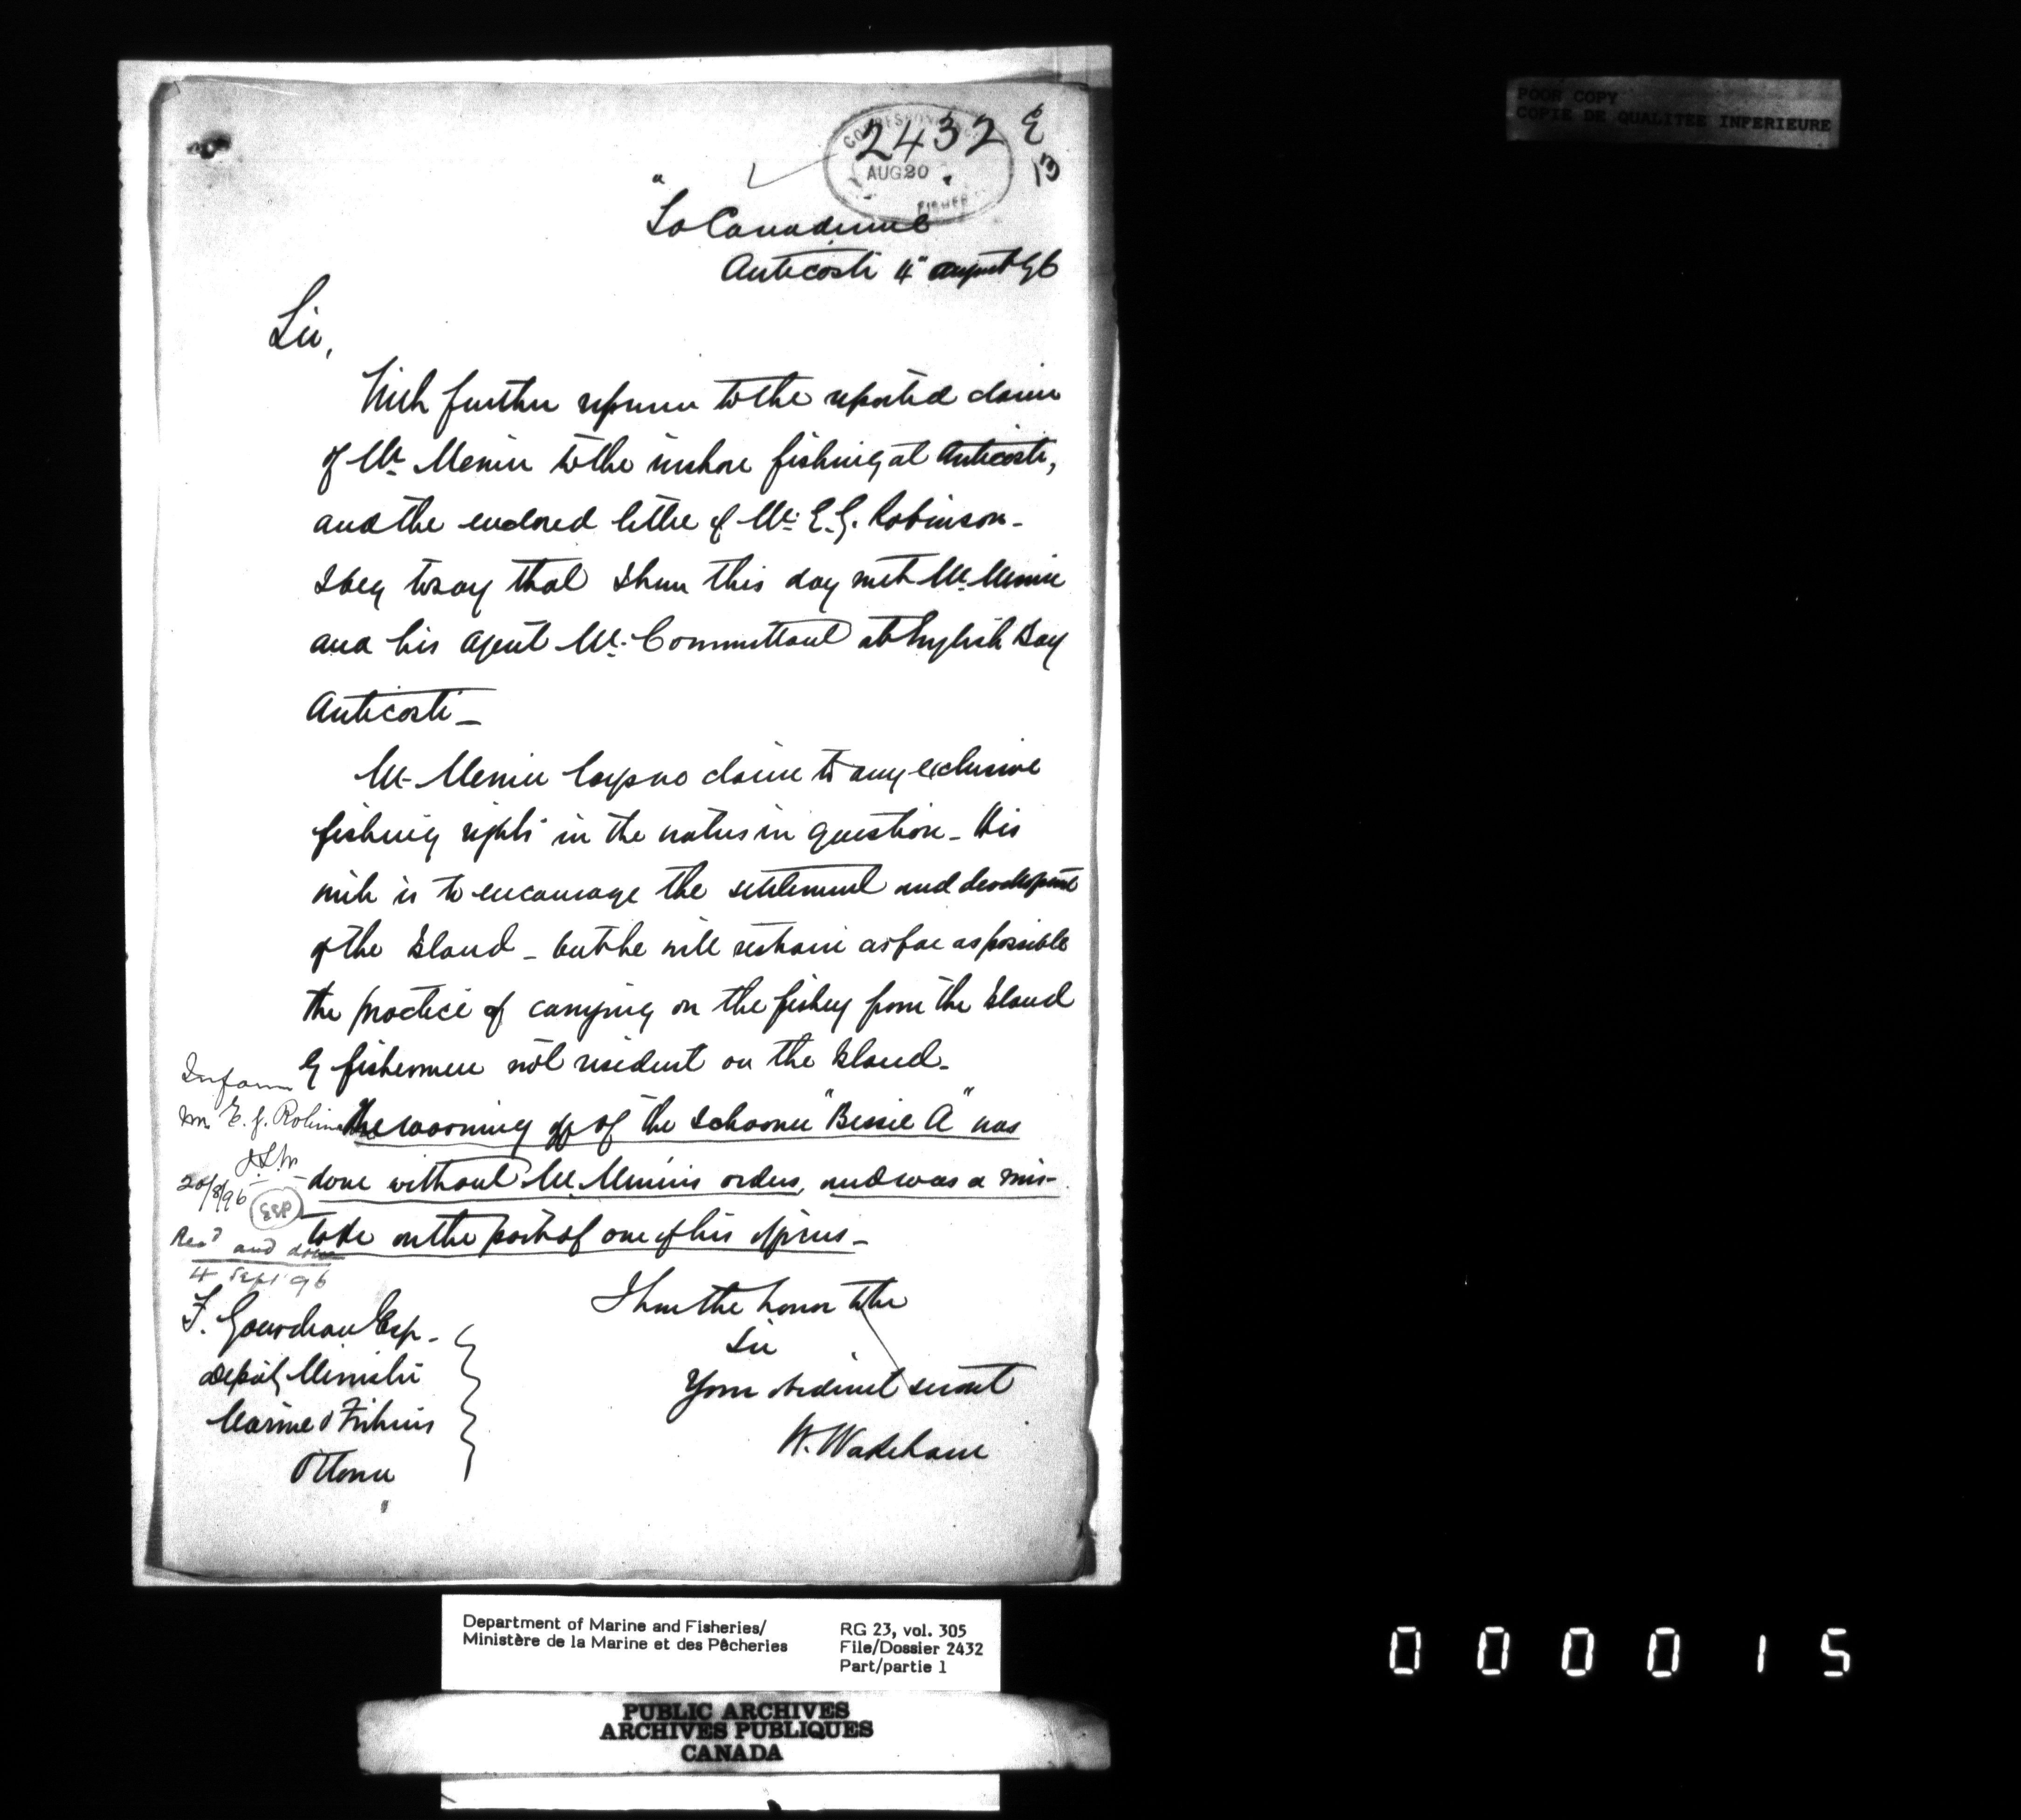 POOR COPY
COPIE DE QUALITEE INFERIEURE
2432 E
13
AUG 20
FISHER
"La Canadienne
Anticosti 4" August 96
Sir,
With further reference to the reported claim
of Mr Menier to the inshore fishing at Anticosti,
and the enclosed letter of Mr. E. G. Robinson -
I beg to say that I have this day met Mr. Menier
and his agent Mr. Commettant at English Bay
Anticosti -
Mr. Menier lays no claim to any exclusive
fishing rights in the waters in question - His
wish is to encourage the settlement and development
of the Island - but he will restrain as far as possible
the practice of carrying on the fishery from the Island
by fishermen not resident on the Island -
The warning off of the Schooner "Bessie A" was
done without Mr. Menier's orders, and was a mis-
take on the part of one of his officers -
Inform
Mr. E. G. Robinson
20/8/96
333
Read and done
4 Sept 96
I have the honor to be
Sir
Your obedient servant
W. Wakeham
F. Gourdeau Esq -
Deputy Minister
Marine & Fisheries
Ottawa
Department of Marine and Fisheries/
Ministère de la Marine et des Pêcheries
RG 23, vol. 305
File/Dossier 2432
Part/partie 1
PUBLIC ARCHIVES
ARCHIVES PUBLIQUES
CANADA
000015